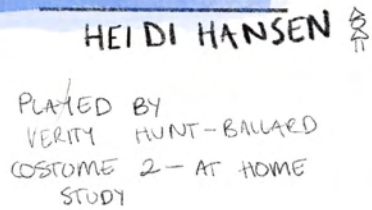 HEIDI HANSEN
PLAYED BY
VERITY HUNT-BALLARD
COSTUME 2 - AT HOME
STUDY